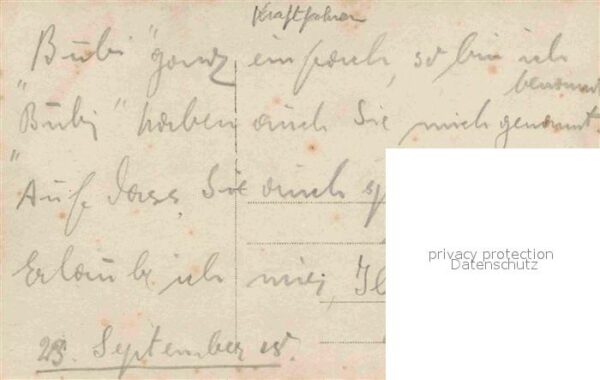 Kraftfahrer
Bubi" ganz einfach, so bin ich
benannt
"Bubi" haben auch Sie mich genannt.
"Auf dass Sie auch
Erlaub ich mir,
23. September 18.
privacy protection
Datenschutz